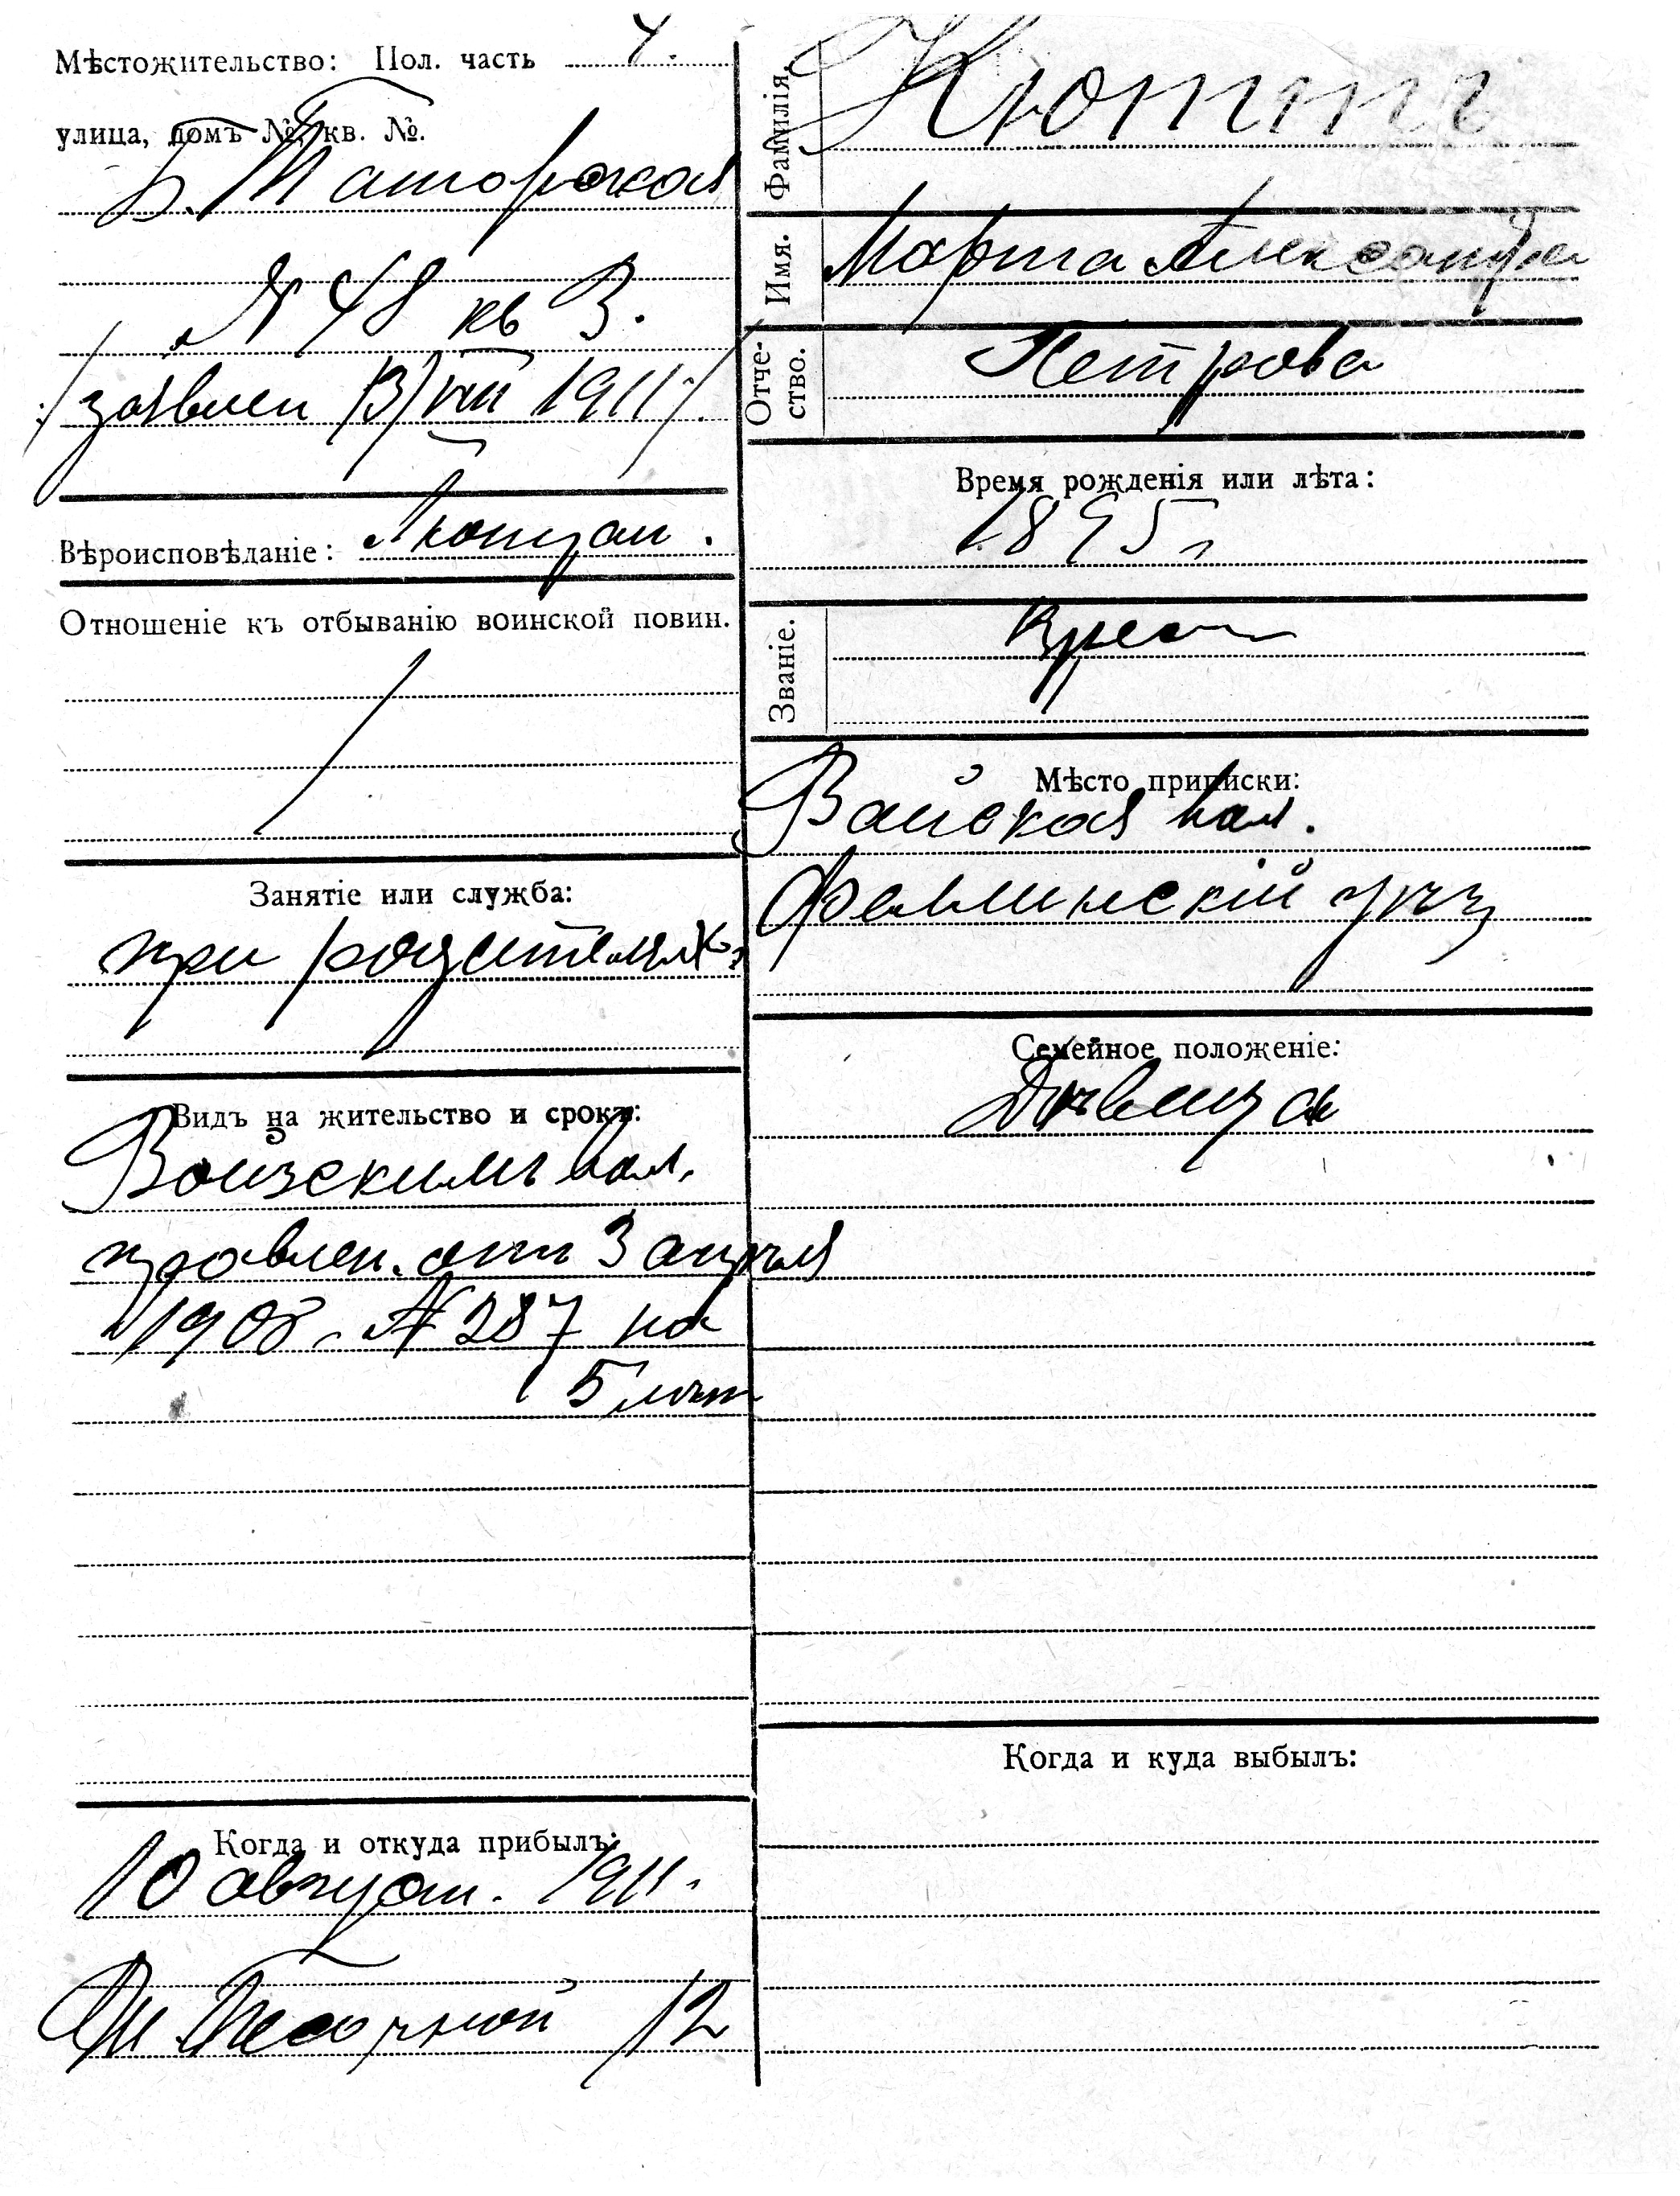 Мѣстожительство: Пол. часть 4.
улица, домъ №, кв. №.
Б. Татарская
№ 48 кв 3.
/заявлен 13/VIII 1911/
Вѣроисповѣданіе: Лютеран.
Отношеніе къ отбыванію воинской повин.
Занятіе или служба:
при родителяхъ
Видъ на жительство и срокъ:
Войским вол.
правлен. отъ 3 апрѣля
1908 г. № 287 на
5 лѣтъ
Когда и откуда прибылъ:
10 август. 1911.
Песочной 12
Фамилія.
Кюттъ
Имя.
Марта Александра
Отчество.
Петрова
Время рожденія или лѣта:
1895 г
Званіе.
Крес
Мѣсто приписки:
Вайская вол.
Феллинскій уѣз
Семейное положеніе:
Дѣвица
Когда и куда выбылъ: